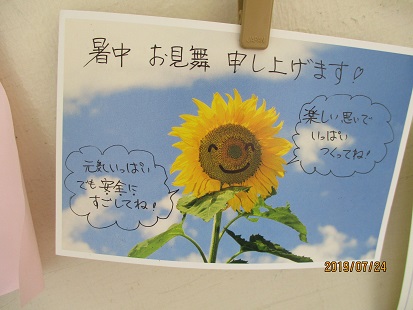 暑中 お見舞 申し上げます♡
楽しい思いで
いっぱい
つくってね!
元気いっぱい
でも安全に
すごしてね!
2019/07/24